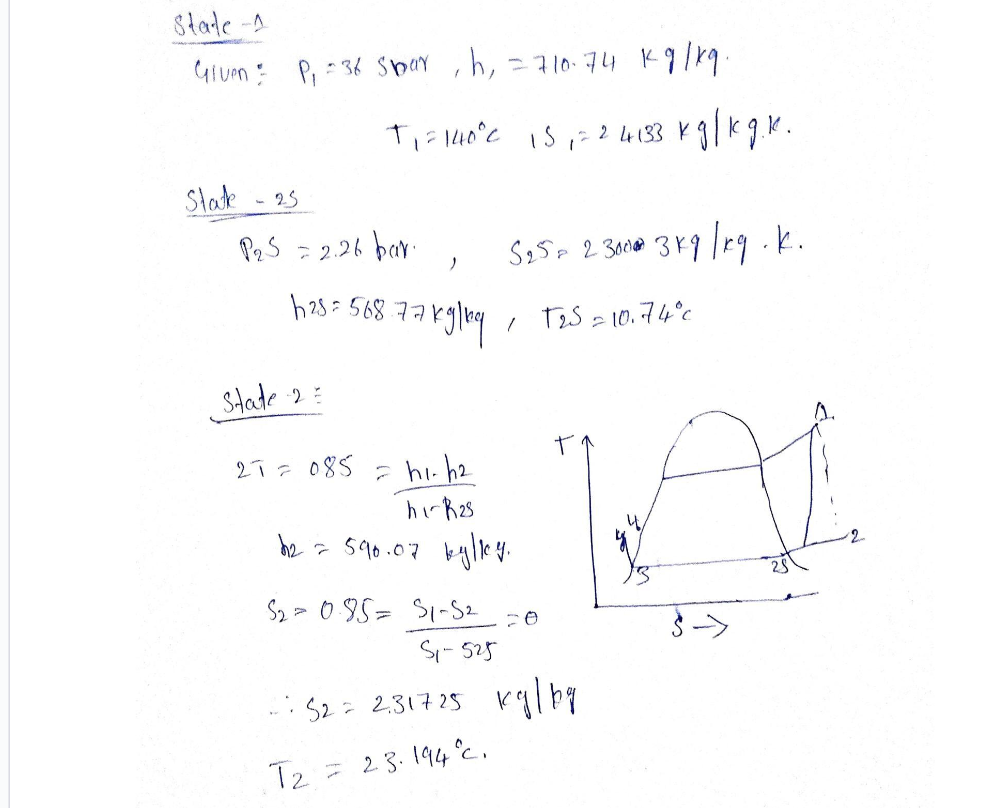 State -1
Given : P₁ = 36 Sbar , h₁ = 710.74 kg/kg.
T₁ = 140°C , S₁ = 2 4133 kg/kg.k.
State - 2S
P2S = 2.26 bar , S2S = 2 3000 3 kg/kg . k.
h2S = 568.77 kg/kg , T2S = 10.74°C
State -2 :
2T = 085 = h1-h2
h1-h2S
h2 = 590.07 kg/kg.
S2 = 0.85 = S1-S2 = 0
S1-S2S
∴ S2 = 2.31725 kg/kg
T2 = 23.194°C.
T
1
4
3
2S
2
S →